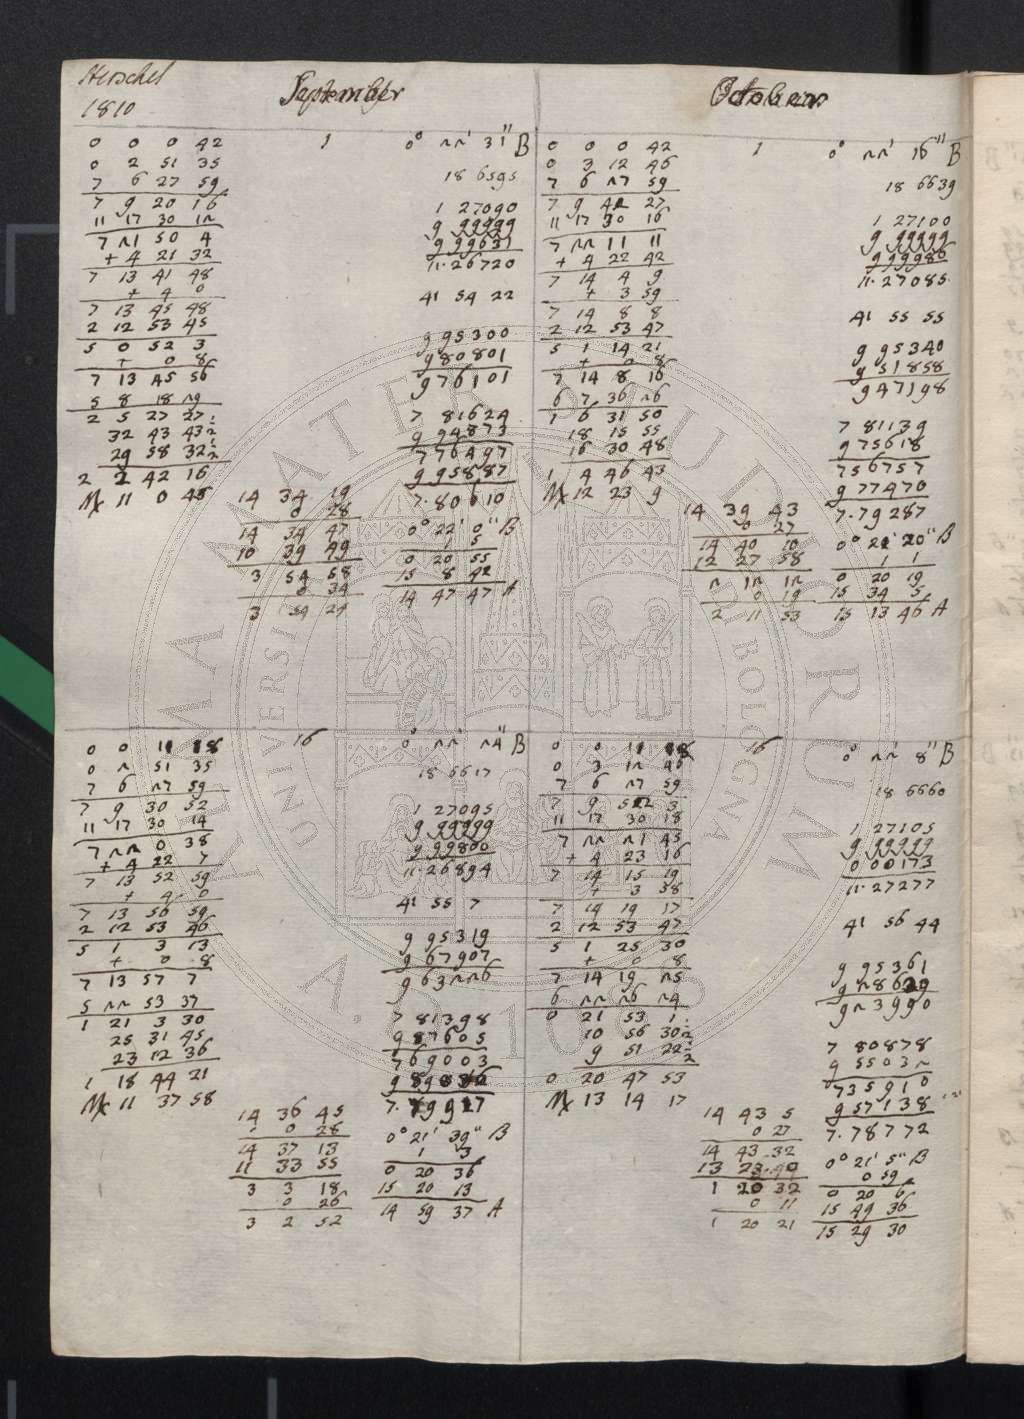 Herschel
1810
September
1
0 0 0 42
0 2 51 35
7 6 27 59
7 9 20 16
11 17 30 12
7 21 50 4
+ 4 21 32
7 13 41 48
+ 4 0
7 13 45 48
2 12 53 45
5 0 52 3
+ 0 8
7 13 45 56
5 8 18 29
2 5 27 27
32 43 43
29 58 32
2 2 42 16
11 0 45
0° 22' 31" B
18 6595
1 27090
9 99999
9 99631
11.26720
41 54 22
9 95300
9 80801
9 76101
7 81624
9 94873
7 76497
9 95887
7.80610
14 34 19
0 28
14 34 47
10 39 49
3 54 58
0 34
3 54 24
0° 22' 0" B
1 5
0 20 55
15 8 42
14 47 47 A
October
1
0 0 0 42
0 3 12 46
7 6 27 59
7 9 41 27
11 17 30 16
7 22 11 11
+ 4 22 42
7 14 4 9
+ 3 59
7 14 8 8
2 12 53 47
5 1 14 21
+ 0 8
7 14 8 16
6 7 36 26
1 6 31 50
18 15 55
16 30 48
1 4 46 43
12 23 9
0° 22' 16" B
18 6639
1 27100
9 99999
9 99986
11.27085
41 55 55
9 95340
9 51858
9 47198
7 81139
9 75618
7 56757
9 77470
7.79287
14 39 43
0 27
14 40 10
12 27 58
2 12 12
0 19
2 11 53
0° 21' 20" B
1 1
0 20 19
15 34 5
15 13 46 A
16
0 0 11 18
0 2 51 35
7 6 27 59
7 9 30 52
11 17 30 14
7 22 0 38
+ 4 22 7
7 13 52 59
+ 4 0
7 13 56 59
2 12 53 46
5 1 3 13
+ 0 8
7 13 57 7
5 22 53 37
1 21 3 30
25 31 45
23 12 36
1 18 44 21
11 37 58
0° 22' 24" B
18 6617
1 27095
9 99999
9 99800
11.26894
41 55 7
9 95319
9 67907
9 63226
7 81398
9 87605
7 69003
7.79927
14 36 45
0 28
14 37 13
11 33 55
3 3 18
0 26
3 2 52
0° 21' 39" B
1 3
0 20 36
15 20 13
14 59 37 A
16
0 0 11 18
0 3 12 46
7 6 27 59
7 9 52 3
11 17 30 18
7 22 21 45
+ 4 23 16
7 14 15 19
+ 3 58
7 14 19 17
2 12 53 47
5 1 25 30
+ 0 8
7 14 19 25
6 22 26 24
0 21 53 1
10 56 30
9 51 22
0 20 47 53
13 14 17
0° 22' 8" B
18 6660
1 27105
9 99999
0 00173
11.27277
41 56 44
9 95361
9 28629
9 23990
7 80878
9 55032
7 35910
9 57138
7.78772
14 43 5
0 27
14 43 32
13 23
1 20 32
0 11
1 20 21
0° 21' 5" B
0 59
0 20 6
15 49 36
15 29 30
ALMA MATER STUDIORUM
UNIVERSITÀ DI BOLOGNA
A.D. 1088